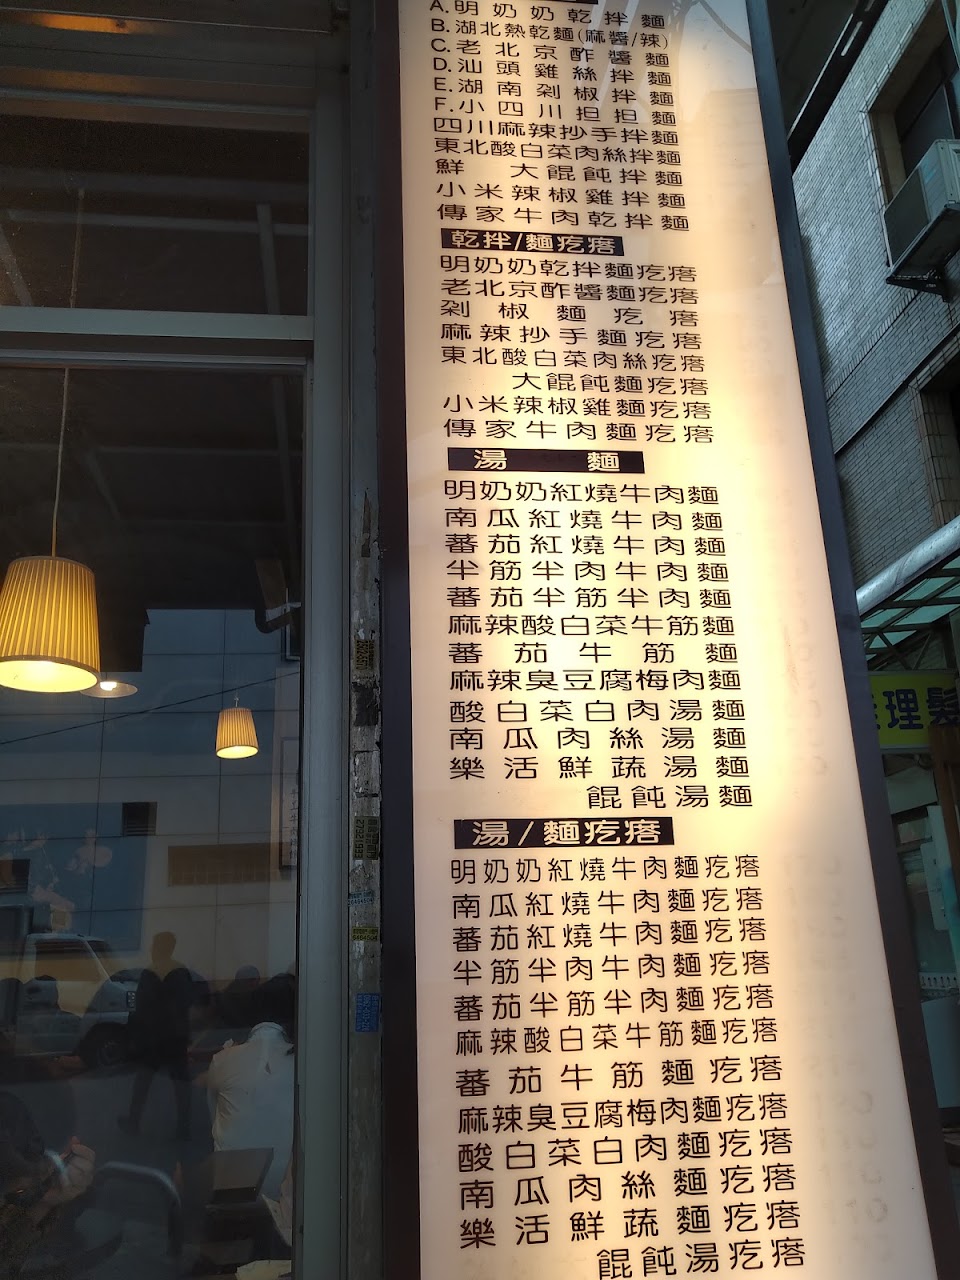 A.明奶奶乾拌麵
B.湖北熱乾麵(麻醬/辣)
C.老北京酢醬麵
D.汕頭雞絲拌麵
E.湖南剁椒拌麵
F.小四川担担麵
四川麻辣抄手拌麵
東北酸白菜肉絲拌麵
鮮 大餛飩拌麵
小米辣椒雞拌麵
傳家牛肉乾拌麵
乾拌/麵疙瘩
明奶奶乾拌麵疙瘩
老北京酢醬麵疙瘩
剁椒麵疙瘩
麻辣抄手麵疙瘩
東北酸白菜肉絲疙瘩
大餛飩麵疙瘩
小米辣椒雞麵疙瘩
傳家牛肉麵疙瘩
湯麵
明奶奶紅燒牛肉麵
南瓜紅燒牛肉麵
蕃茄紅燒牛肉麵
半筋半肉牛肉麵
蕃茄半筋半肉麵
麻辣酸白菜牛筋麵
蕃茄牛筋麵
麻辣臭豆腐梅肉麵
酸白菜白肉湯麵
南瓜肉絲湯麵
樂活鮮蔬湯麵
餛飩湯麵
湯/麵疙瘩
明奶奶紅燒牛肉麵疙瘩
南瓜紅燒牛肉麵疙瘩
蕃茄紅燒牛肉麵疙瘩
半筋半肉牛肉麵疙瘩
蕃茄半筋半肉麵疙瘩
麻辣酸白菜牛筋麵疙瘩
蕃茄牛筋麵疙瘩
麻辣臭豆腐梅肉麵疙瘩
酸白菜白肉麵疙瘩
南瓜肉絲麵疙瘩
樂活鮮蔬麵疙瘩
餛飩湯疙瘩
理髮